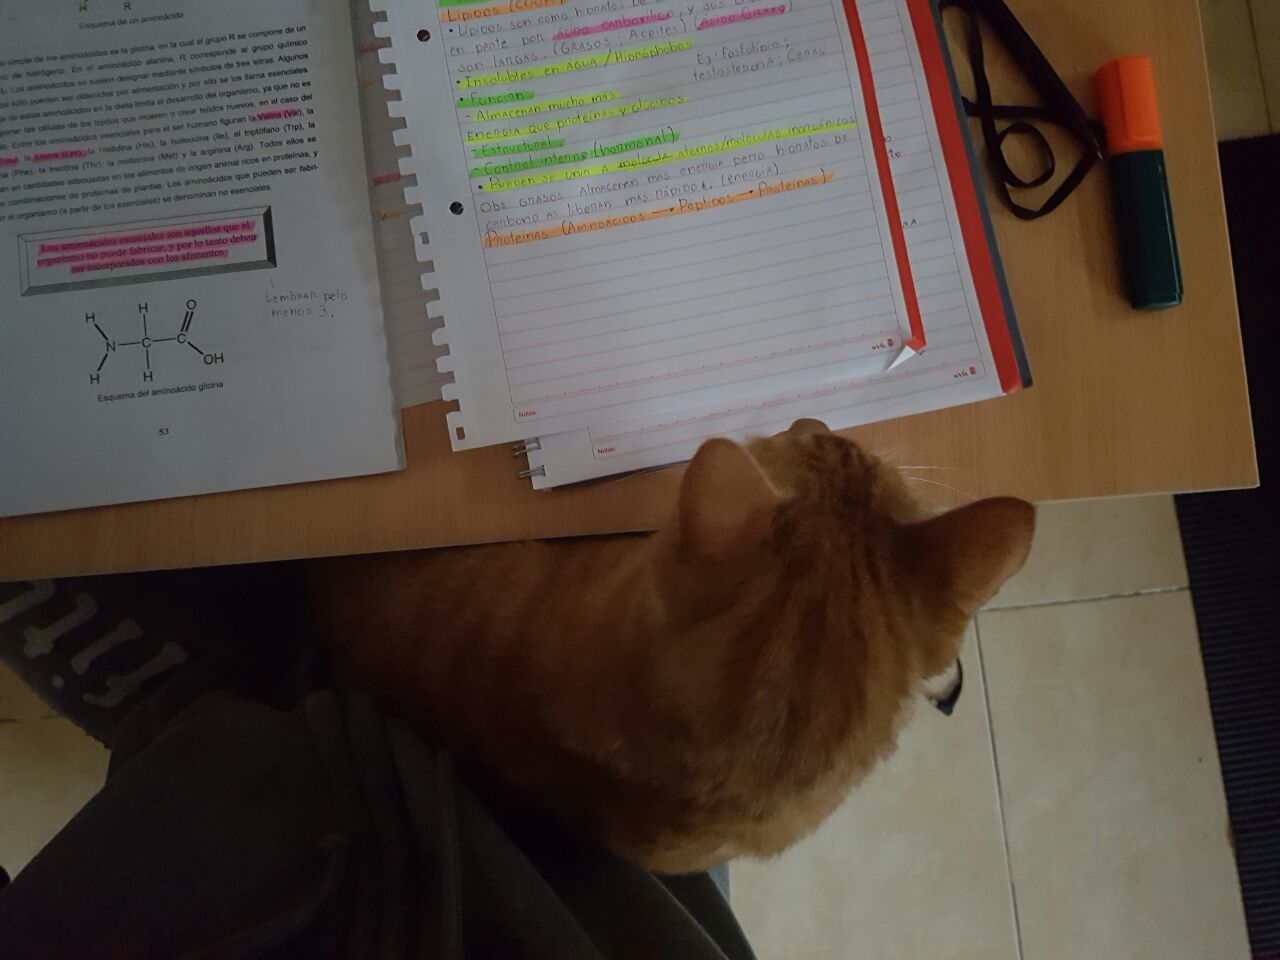 H R
Esquema de un aminoácido
simple de los aminoácidos es la glicina, en la cual el grupo R se compone de un
de hidrógeno. En el aminoácido alanina, R corresponde al grupo químico
Los aminoácidos se suelen designar mediante símbolos de tres letras. Algunos
sólo pueden ser obtenidos por alimentación y por ello se los llama esenciales
de estos aminoácidos en la dieta limita el desarrollo del organismo, ya que no es
las células de los tejidos que mueren o crear tejidos nuevos, en el caso del
Entre los aminoácidos esenciales para el ser humano figuran la Valina (Val), la
la Lisina (Lys), la Histidina (His), la Isoleucina (Ile), el triptófano (Trp), la
(Phe), la treonina (Thr), la metionina (Met) y la arginina (Arg). Todos ellos se
en cantidades adecuadas en los alimentos de origen animal ricos en proteínas, y
combinaciones de proteínas de plantas. Los aminoácidos que pueden ser fabri-
el organismo (a partir de los esenciales) se denominan no esenciales.
Los aminoácidos esenciales son aquellos que el
organismo no puede fabricar, y por lo tanto deben
ser incorporados con los alimentos
Lembrar pelo
menos 3.
H H O
N C C
H H OH
Esquema del aminoácido glicina
53
Lípidos
• Lípidos son como hidratos de
en parte por ácido carboxílico, y sus
son largas. (Grasos; Aceites) (Ácido Graxo)
• Insolubles en água / Hidrófobos
Ej: fosfolípio;
testosterona; ceras
• Función
- Almacenan mucho más
energía que proteínas y glúcidos
- Estructural
- Control interno (hormonal)
• Pueden se unir a molecula atomos/moleculas inorgánicos
Obs: Grasos almacenan más energía pero hidratos de
carbono as liberan mas rápido. (energía)
Proteínas (Aminoácidos → Péptidos → Proteínas)
Notas:
Notas: